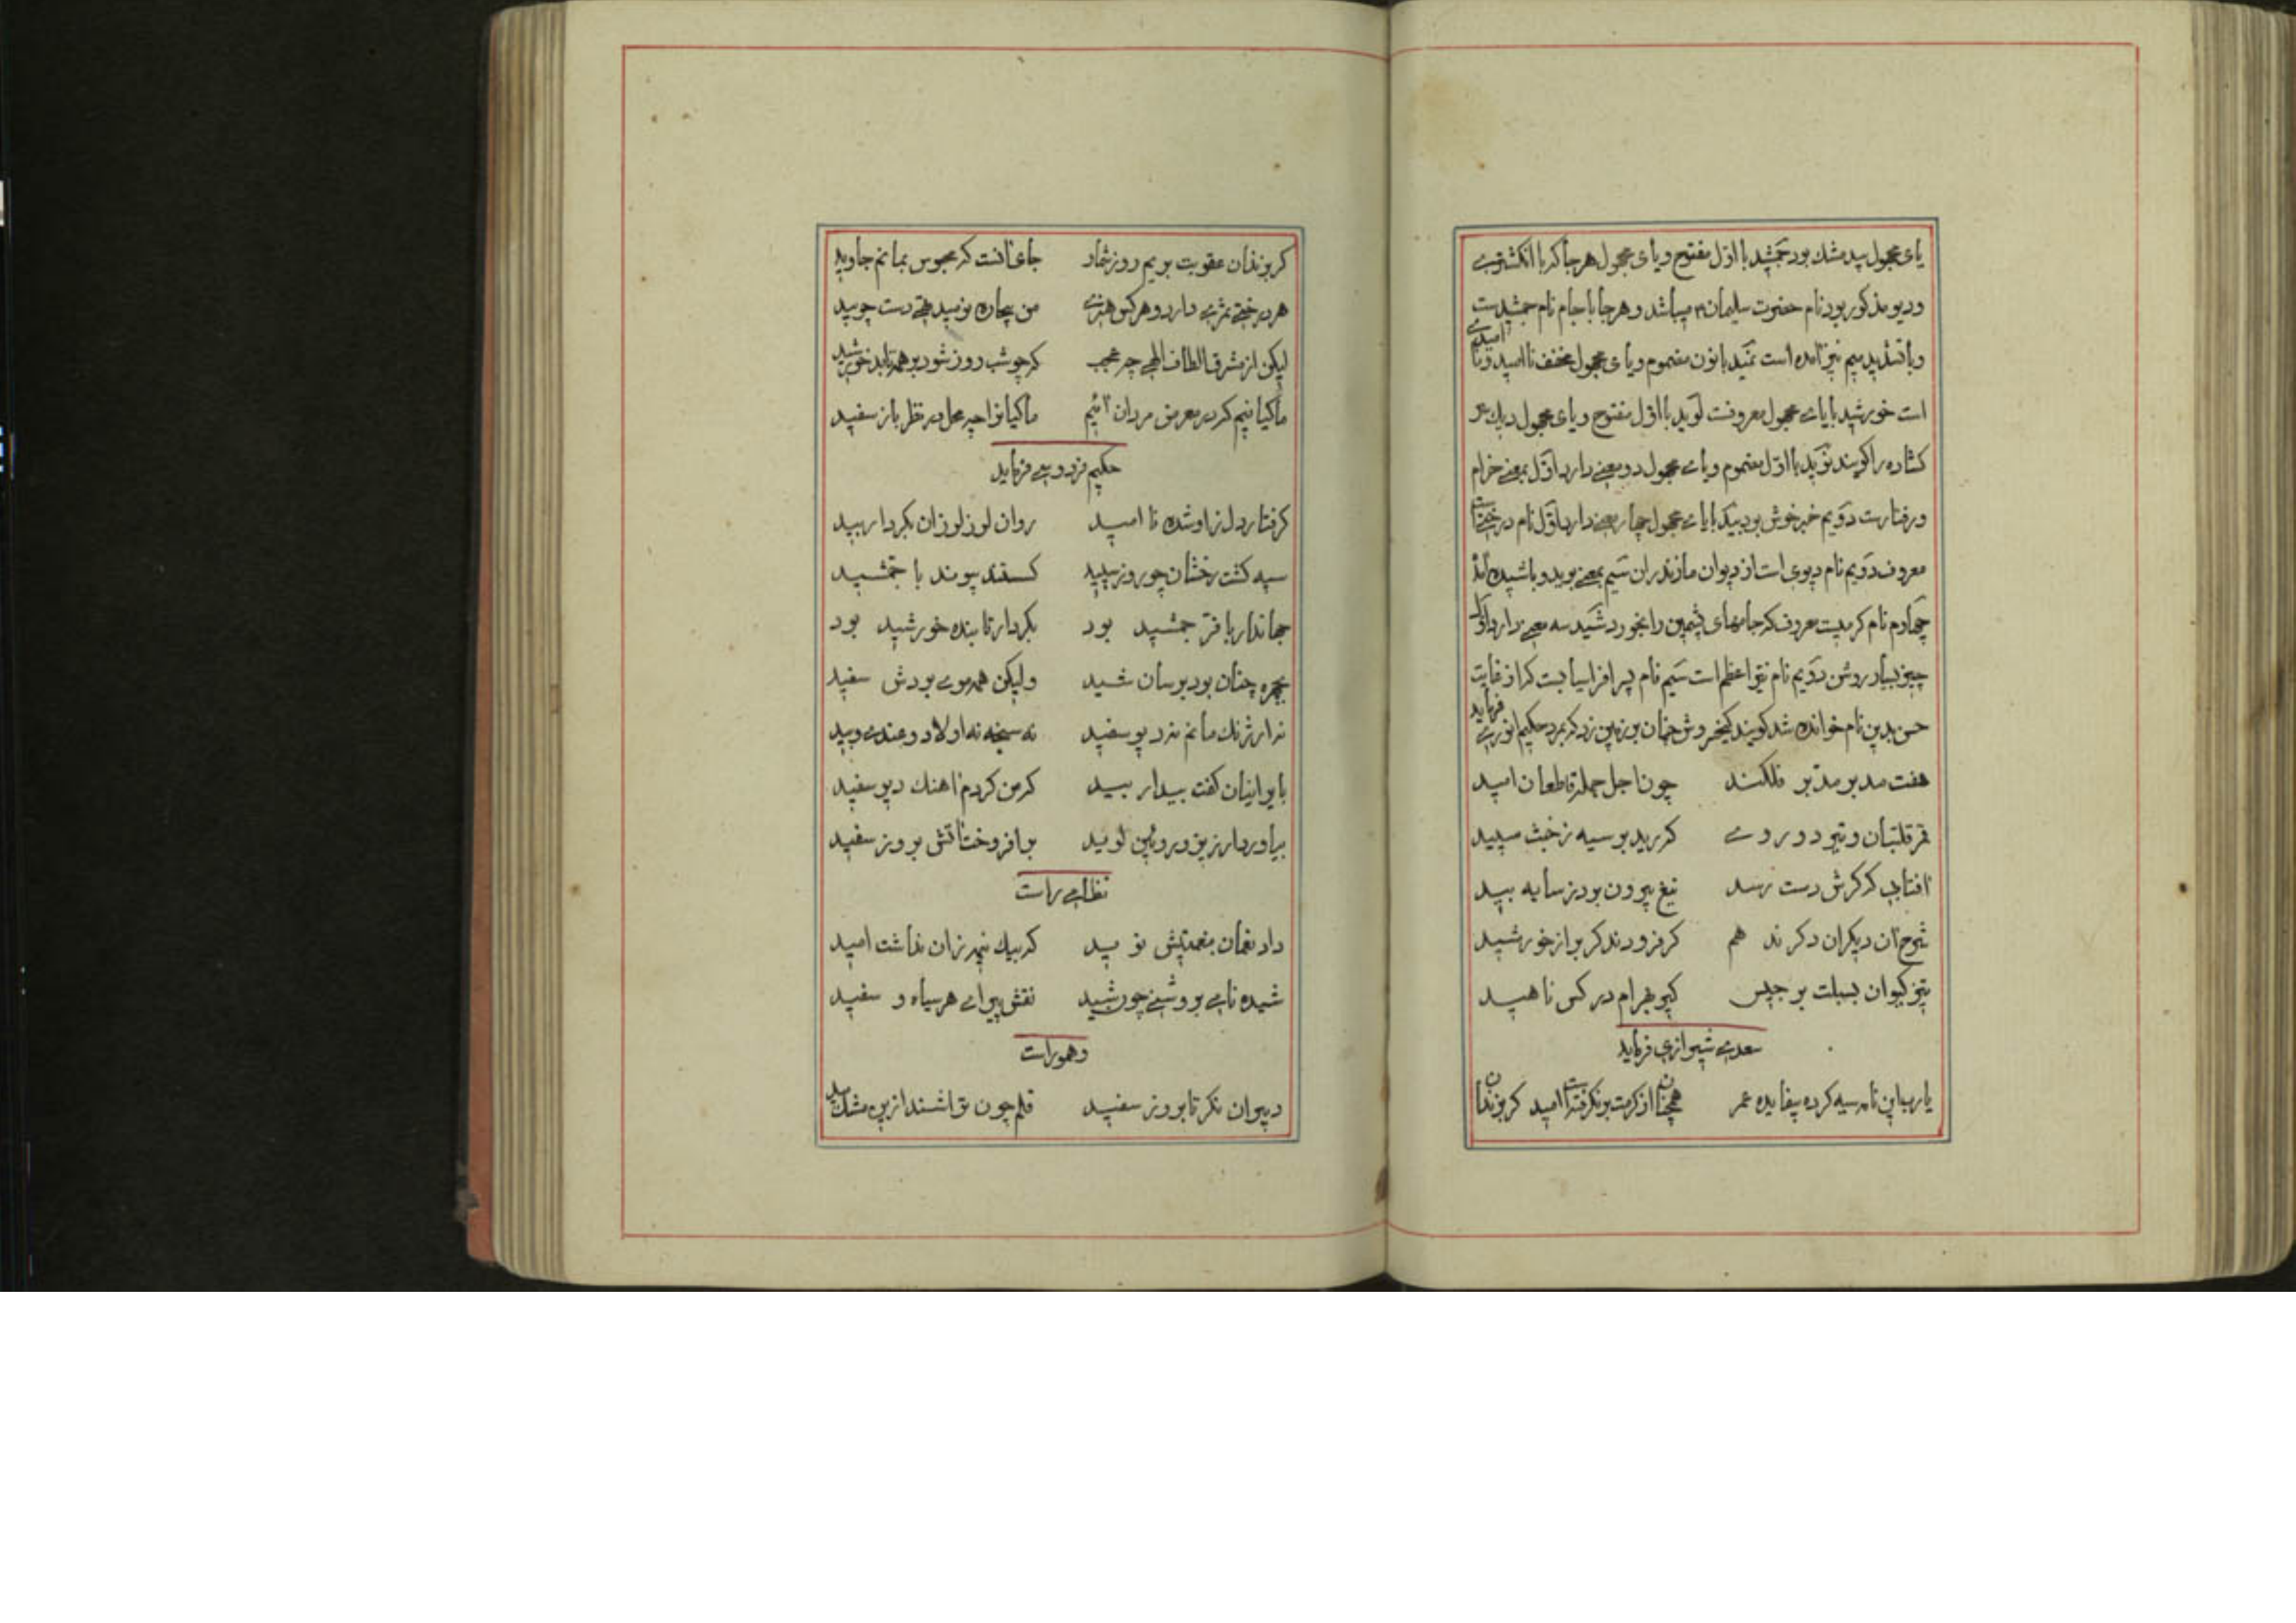 یای مجهول پید مشك بود جمشید با اوّل مفتوح و یای مجهول هر جا که با انکشتری
و دیو مذکور بود نام حضرت سلیمان م میباشد و هر جا با جام نام جمشیدست
و با تشدید میم نیز آمده است نمید با نون مضموم و یای مجهول مخفف نا امید و نا امیدی
است خورشید با یای مجهول معروفست لوید با اوّل مفتوح و یای مجهول دیك سر
کشاده را کویند نوید با اوّل مضموم و یای مجهول دو معنی دارد اوّل بمعنی خرام
و رفتارست دویم خبر خوش بود بید با یای مجهول چهار معنی دارد اوّل نام درختیست
معروف دویم نام دیوی است از دیوان مازندران سیم بمعنی بوید و باشید آمد
چهارم نام کرمیست معروف که جامهای پشمین را بخورد شید سه معنی دارد اوّل
چیز بسیار روشن دویم نام نیّر اعظم است سیم نام پسر افراسیابست که از غایت
حسن بدین نام خوانده شد کویند کیخسروش چنان بر زمین زد که بمرد حکیم انوری فرماید
هفت مدبر مدبر فلکند چون اجل جمله قاطعان امید
قمر قلتبان و تیر دو روی کر رید بر سیه زخبث سپید
آفتابی که کرش دست رسد تیغ بیرون برد ز سایه بید
شرح آن دیکران دکر ند هم کر فزودند کر بر از خورشید
تیز کیوان بسبلت برجیس کیر بهرام در کس ناهید
سعدی شیرازی فرماید
یا رب این نامه سیه کرده بیفایده عمر همچنان از کرمت بر نکرفتست امید کر بزندان
کر بزندان عقوبت بریم روز شمار جای آنست که محبوس بمانم جاوید
هر درختی ثمری دارد و هر کس هنری من بیچاره نومید تهی دست چو بید
لیکن از مشرق الطاف الهی چه عجب که چو شب روز شود بر همه تابد خورشید
ما کیانیم که در معرض مردان آئیم ماکیانرا چه محل در نظر باز سفید
حکیم فردوسی فرماید
کرفتار دل زو شده نا امید روان لرز لرزان بکردار بید
سیه کشت رخشان چو روز سپید کسنتد پیوند با جمّشید
جهاندار با فرّ جمشید بود بکردار تابنده خورشید بود
بچهره چنان بود برسان شید ولیکن همه موی بودش سفید
نه ارژنك مانم نه دیو سفید نه سنجه نه اولاد و غندی و بید
بایرانیان کفت بیدار بید که من کردم آهنك دیو سفید
بیاورد ارزیز و روئین لوید برافروخت آتش بروز سفید
نظامی راست
داد نعمان بنعمتیش نوید که بیك نیمه زان نداشت امید
شیده نامی بروشنی چون شید نقش پیرای هر سیاه و سفید
و هموراست
دبیران نکر تا بروز سفید قلم چون تراشند از مشك بید